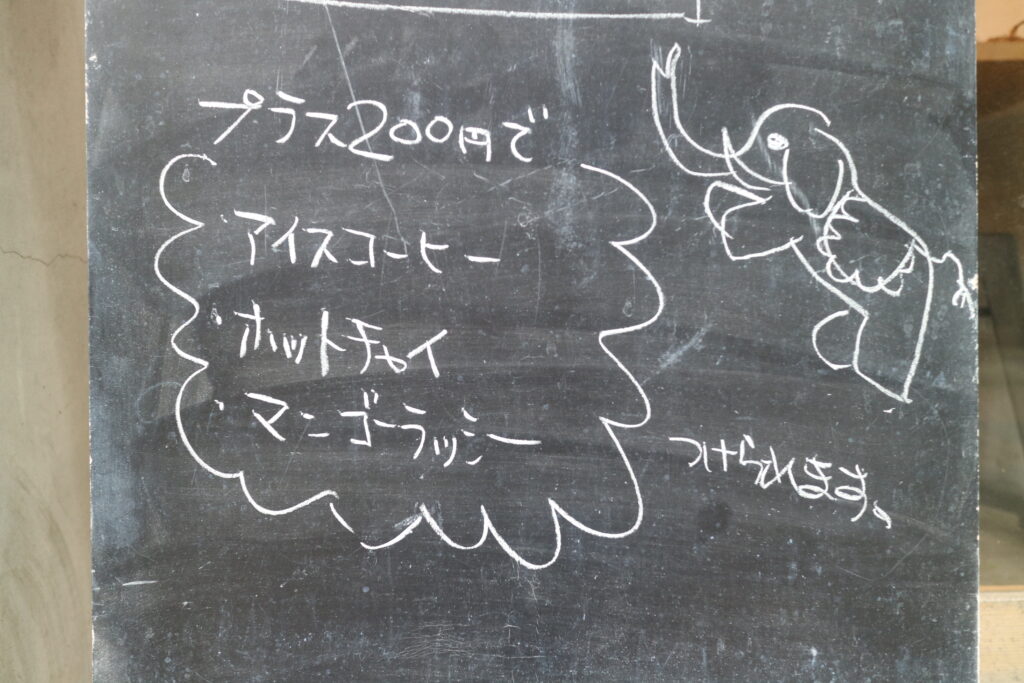 プラス200円で
アイスコーヒー
・ホットチャイ
・マンゴーラッシー
つけられます。